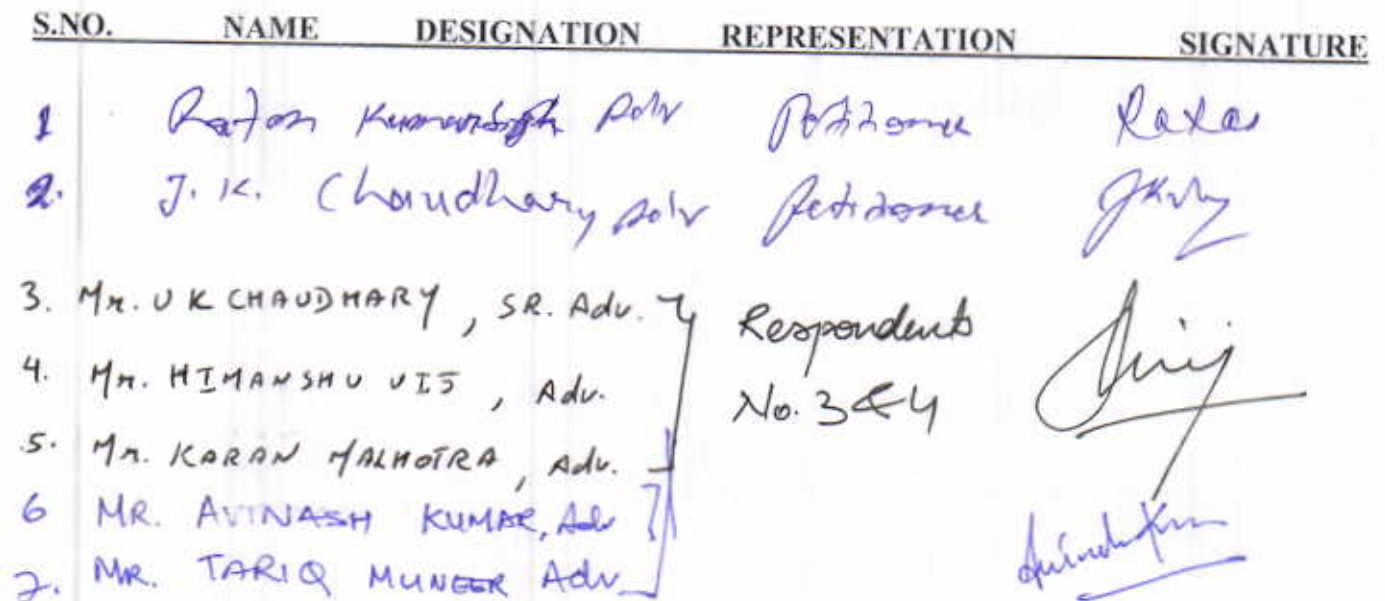 S.NO. NAME DESIGNATION REPRESENTATION SIGNATURE
1 Ratan Kumar Singh Adv Petitioner
2. J. K. Chaudhary Adv Petitioner
3. Mr. U K CHAUDHARY, SR. Adv. Respondents
4. Mr. HIMANSHU VIJ, Adv. No. 3 & 4
5. Mr. KARAN MALHOTRA, Adv.
6 MR. AVINASH KUMAR, Adv
7. MR. TARIQ MUNEER Adv